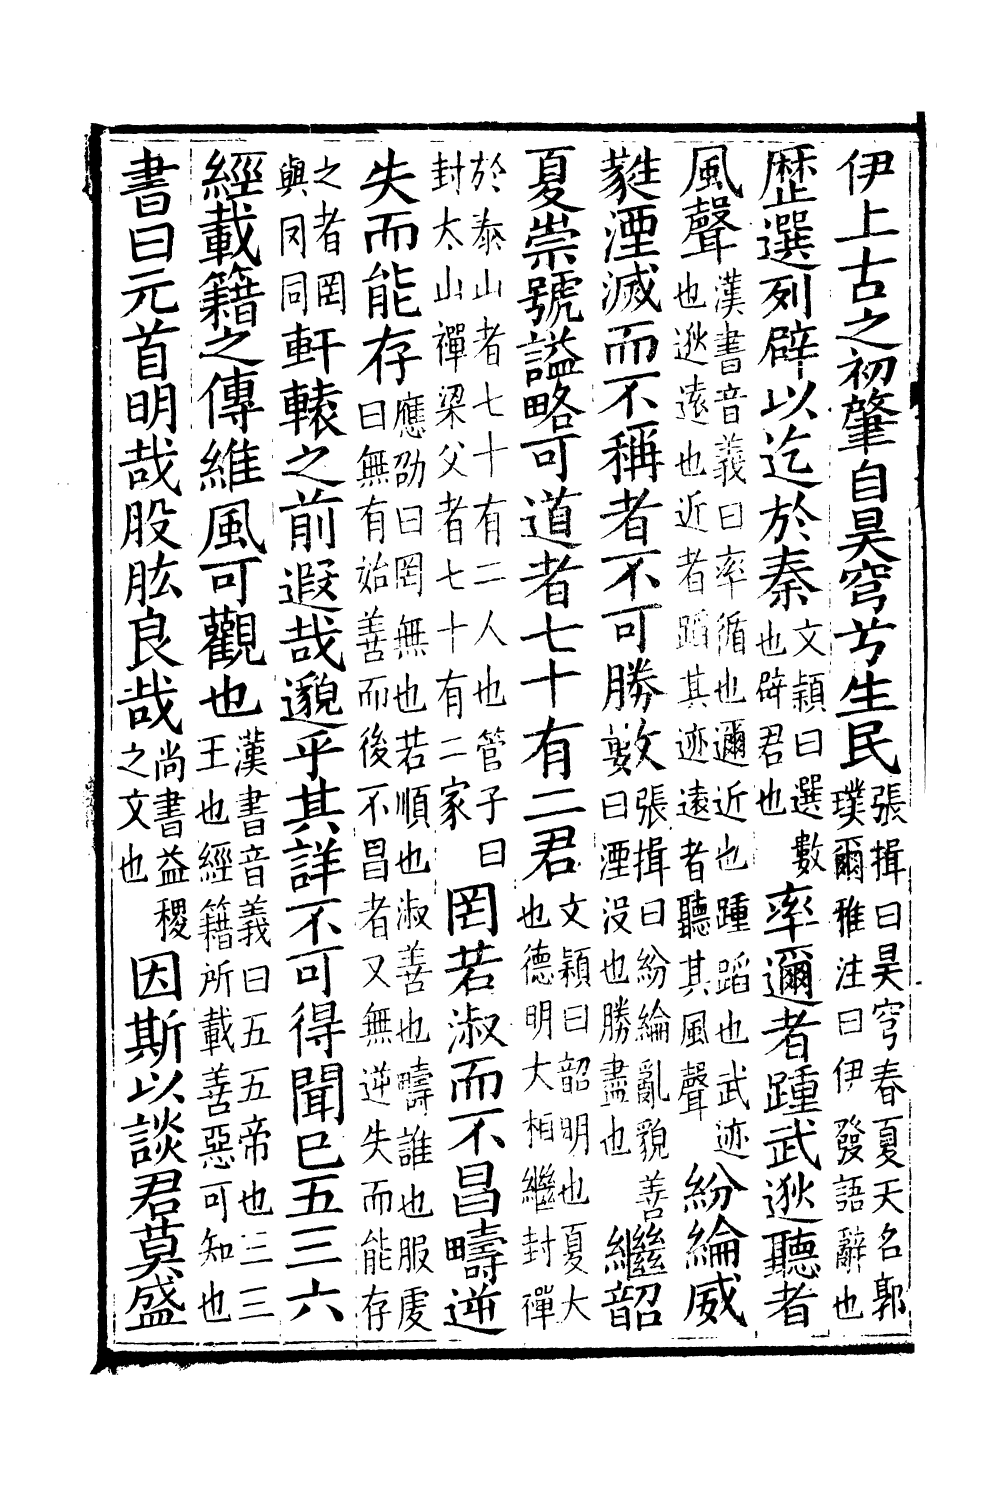 伊上古之初肇自昊穹兮生民張揖曰昊穹春夏天名郭璞爾雅注曰伊發語辭也
歷選列辟以迄於秦文穎曰選數也辟君也率邇者踵武逖聽者
風聲漢書音義曰率循也邇近也踵蹈也武迹也逖遠也近者蹈其迹遠者聽其風聲紛綸威
蕤湮滅而不稱者不可勝數張揖曰紛綸亂貌善曰湮沒也勝盡也繼韶
夏崇號謚略可道者七十有二君文穎曰韶明也夏大也德明大相繼封禪
於泰山者七十有二人也管子曰封太山禪梁父者七十有二家罔若淑而不昌疇逆
失而能存應劭曰罔無也若順也淑善也疇誰也服虔曰無有始善而後不昌者又無逆失而能存
之者罔與冈同軒轅之前遐哉邈乎其詳不可得聞已五三六
經載籍之傳維風可觀也漢書音義曰五五帝也三三王也經籍所載善惡可知也
書曰元首明哉股肱良哉尚書益稷之文也因斯以談君莫盛